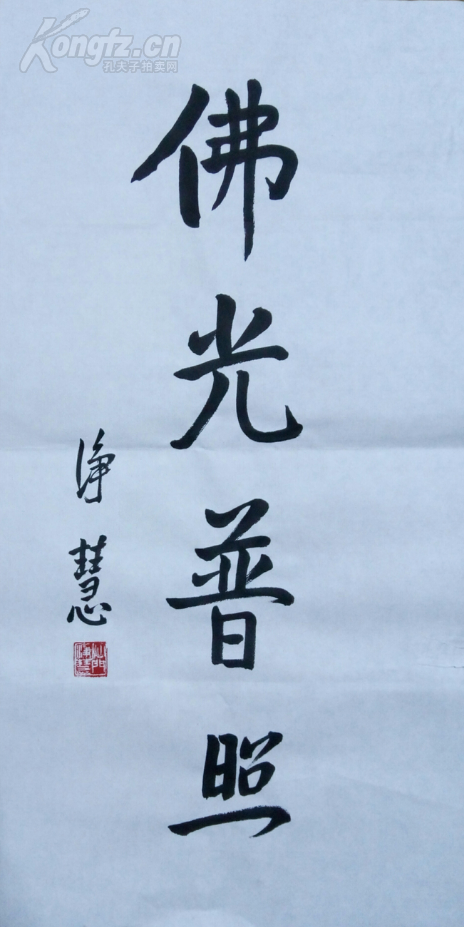 Kongfz.cn
孔夫子拍卖网
佛光普照
净慧